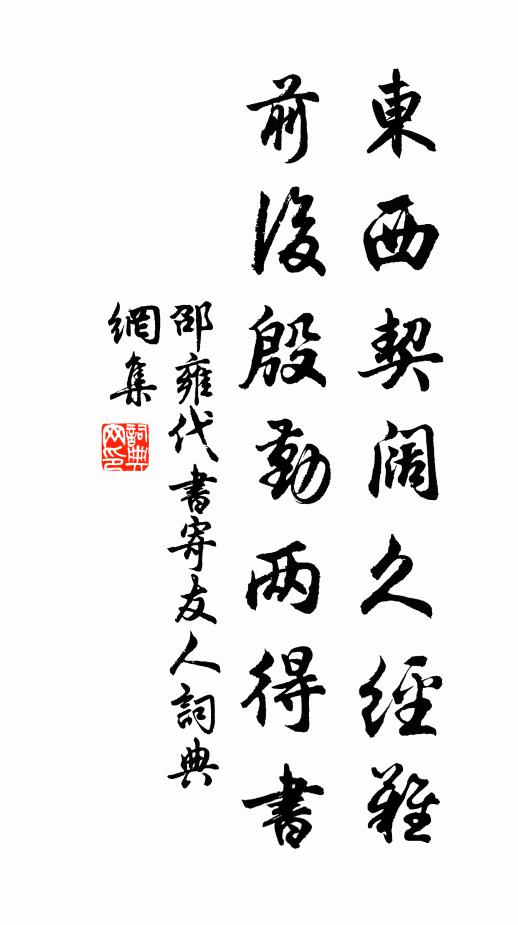 東西契阔久經難
前後殷勤两得書
邵雍代書寄友人詞典
網集
詞典
网印